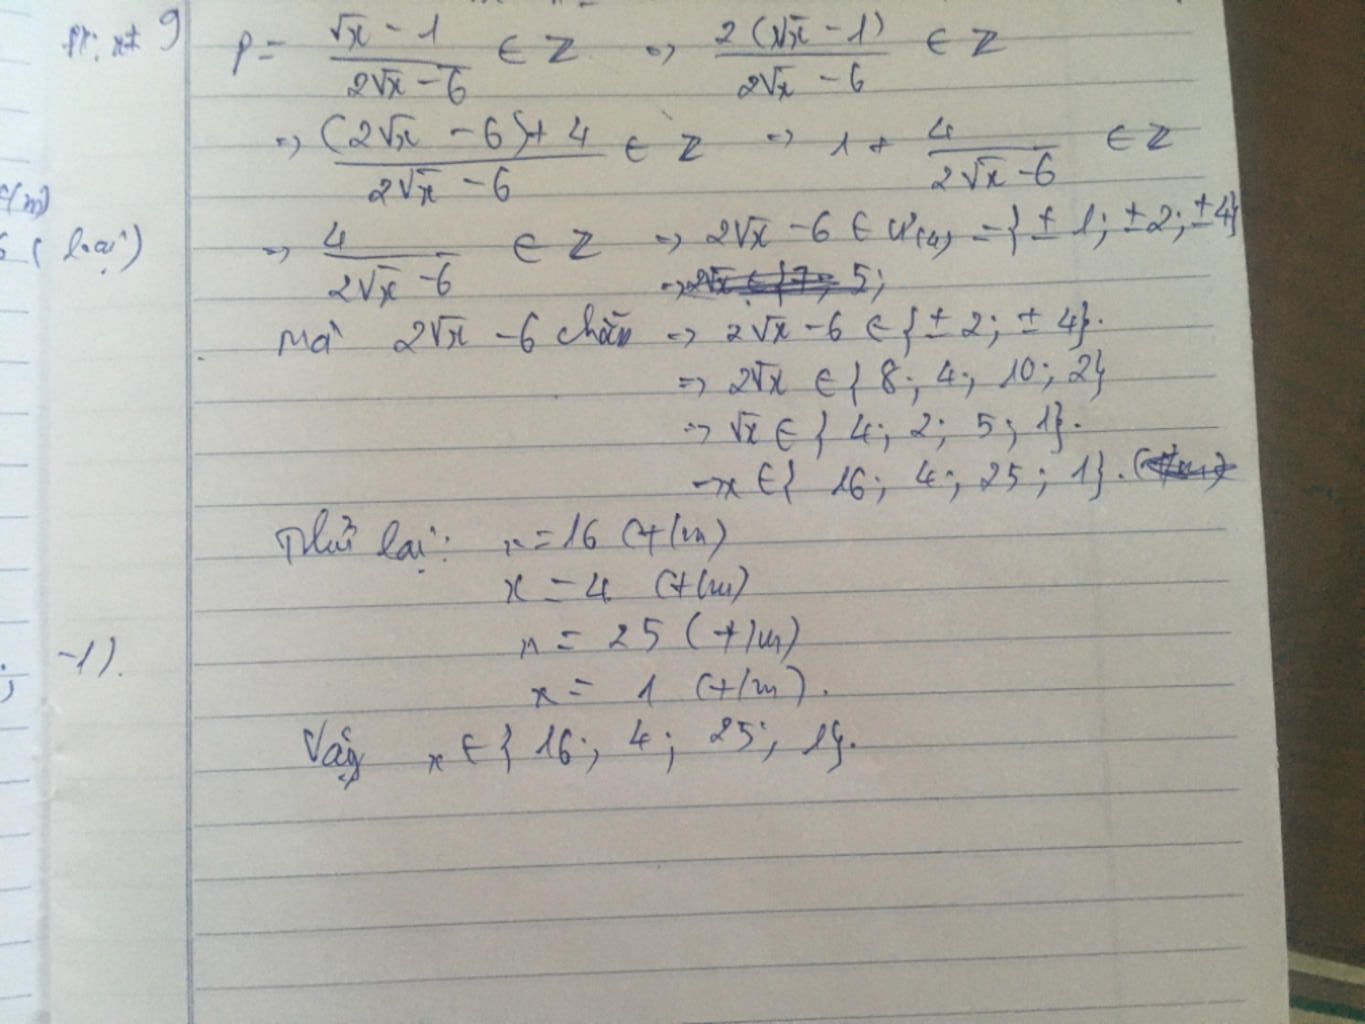 x ≠ 9
P = (√x - 1)/(2√x - 6) ∈ Z => 2(√x - 1)/(2√x - 6) ∈ Z
=> ((2√x - 6) + 4)/(2√x - 6) ∈ Z => 1 + 4/(2√x - 6) ∈ Z
(t/m)
(loại)
=> 4/(2√x - 6) ∈ Z => 2√x - 6 ∈ Ư(4) = {± 1; ± 2; ± 4}
=> 2√x ∈ {7; 5;
Mà 2√x - 6 chẵn => 2√x - 6 ∈ {± 2; ± 4}.
=> 2√x ∈ { 8; 4; 10; 2}
=> √x ∈ { 4; 2; 5; 1}.
=> x ∈ { 16; 4; 25; 1}. (t/m)
Thử lại: x = 16 (t/m)
x = 4 (t/m)
x = 25 (t/m)
-1).
x = 1 (t/m).
Vậy x ∈ { 16; 4; 25; 1}.